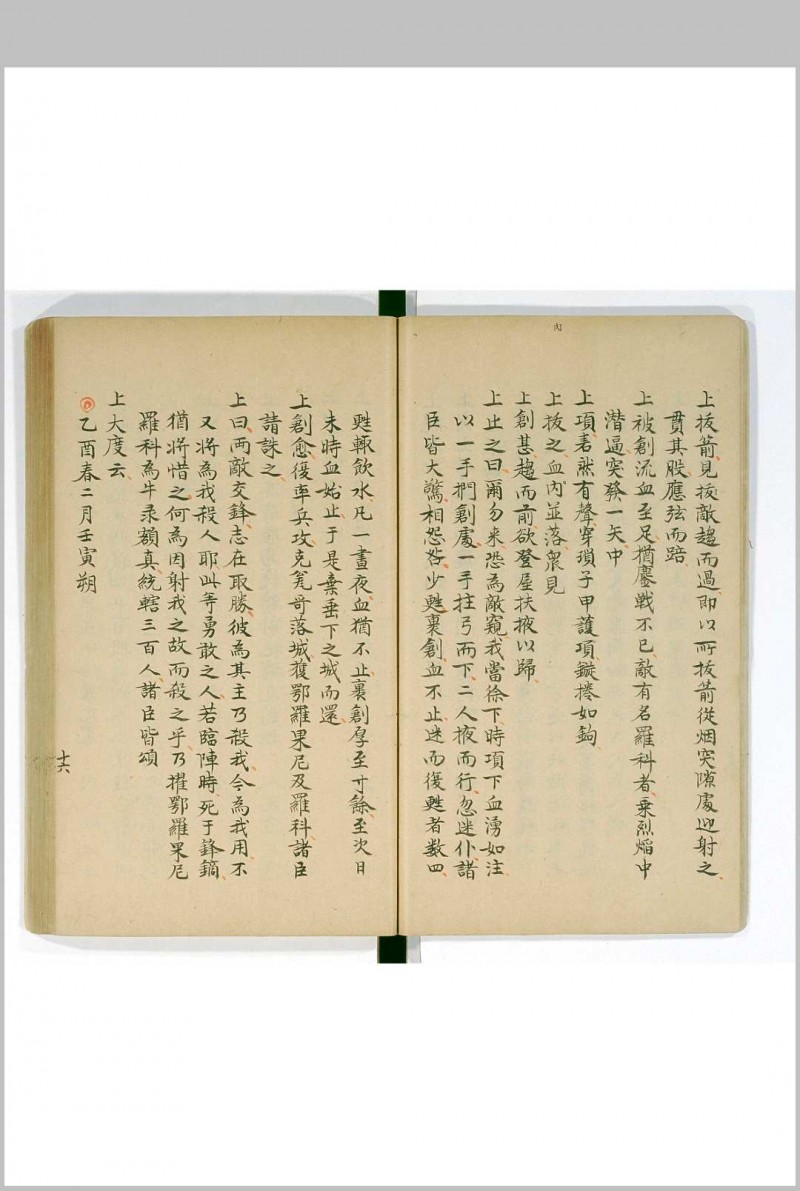 內
上拔箭見拔敵趨而過即以所拔箭從烟突隙處迎射之
貫其股應弦而踣
上被創流血至足猶鏖戰不已敵有名羅科者乘烈焰中
潛逼突發一矢中
上項砉然有聲穿瑣子甲護項鏃捲如鉤
上拔之血肉並落眾見
上創甚趨而前欲登屋扶掖以歸
上止之曰爾勿來恐為敵窺我當徐下時項下血湧如注
以一手捫創處一手拄弓而下二人掖而行忽迷仆諸
臣皆大驚相怨咎少甦裹創血不止迷而復甦者數四
甦輒飲水凡一晝夜血猶不止裹創厚至寸餘至次日
未時血始止于是棄垂下之城而還
上創愈復率兵攻克瓮哥落城獲鄂羅果尼及羅科諸臣
請誅之
上曰兩敵交鋒志在取勝彼為其主乃殺我今為我用不
又將為我殺人耶此等勇敢之人若臨陣時死于鋒鏑
猶將惜之何為因射我之故而殺之乎乃擢鄂羅果尼
羅科為牛彔額真統轄三百人諸臣皆頌
上大度云
乙酉春二月壬寅朔
十六